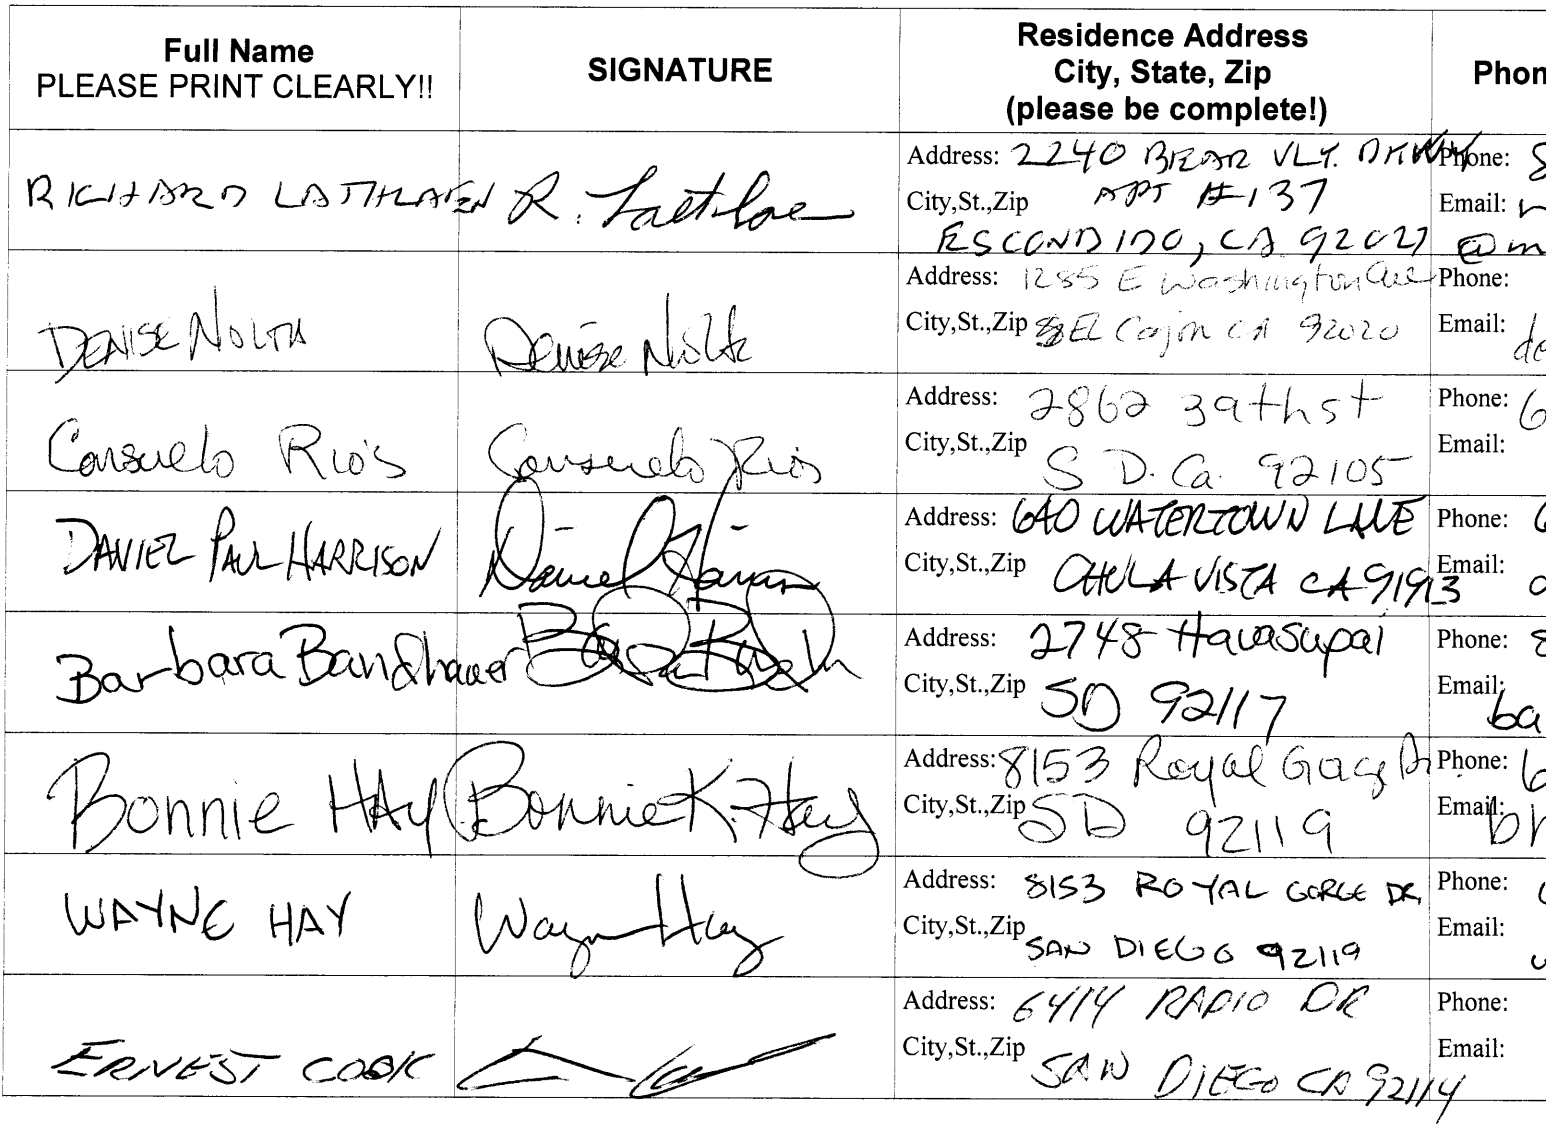 Full Name
PLEASE PRINT CLEARLY!!
SIGNATURE
Residence Address
City, State, Zip
(please be complete!)
Phon
RICHARD LATHLAEN
R.
Address: 2240 BEAR VLY. PKWAY
City,St.,Zip APT #137
ESCONDIDO, CA 92027
Phone: 8
Email:
@m
DENISE NOLTA
Denise Nolte
Address: 1285 E Washington Ave
City,St.,Zip El Cajon CA 92020
Phone:
Email:
de
Consuelo Rios
Consuelo Rios
Address: 2862 39th st
City,St.,Zip
S D. Ca. 92105
Phone: 6
Email:
DANIEL PAUL HARRISON
Daniel Harrison
Address: 640 WATERTOWN LANE
City,St.,Zip CHULA VISTA CA 91913
Phone: 6
Email:
Barbara Bandhauer
Address: 2748 Havasupai
City,St.,Zip SD 92117
Phone: 8
Email: ba
Bonnie HAY
Bonnie K. Hay
Address: 8153 Royal Gorge Dr.
City,St.,Zip SD 92119
Phone: 6
Email: bh
WAYNE HAY
Wayne Hay
Address: 8153 ROYAL GORGE DR,
City,St.,Zip SAN DIEGO 92119
Phone:
Email:
ERNEST COOK
Address: 6414 RADIO DR
City,St.,Zip SAN DIEGO CA 92114
Phone:
Email: